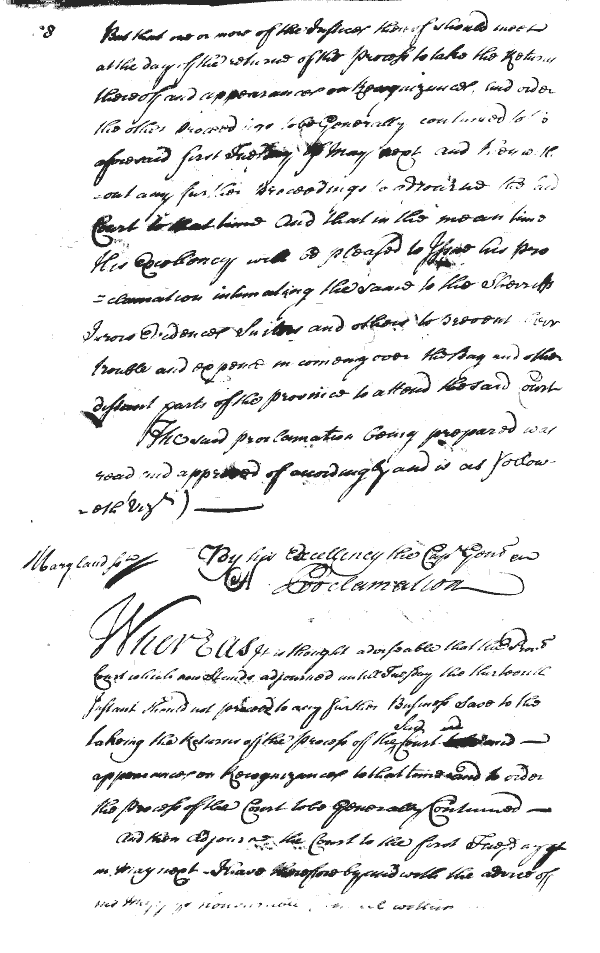 8
But that one or more of the Justices thereof should meet
at the day of the returne of the Process to take the Return
thereof and appearances on Recognizances, and order
the other proceedings to be Generally continued to
aforesaid first Tuesday of May next and then with
=out any further proceedings to adjourne the said
Court to that time And that in the mean time
His Excellency will be pleased to Issue his Pro
=clamation intimating the same to the Sherriffs
Jurors Evidences Suitors and others to prevent their
trouble and expence in comeing over the Bay and other
distant parts of the province to attend the said Court
The said proclamation being prepared was
read and approved of accordingly and is as follow
=eth Vizt)
Maryland sst
By his Excellency the Capt Genll &ca
A Proclamation
Whereas It is thought adviseable that the Provl
Court which now Stands adjourned until Tuesday the thirteenth
Instant should not proceed to any further Business Save to the
takeing the Returns of the Process of the said Court and
appearances on Recognizances to that time and to order
the Process of the Court to be Generally Continued
And then Adjourne the Court to the first Tuesday
in May next I have therefore by and with the advice of
his honourable